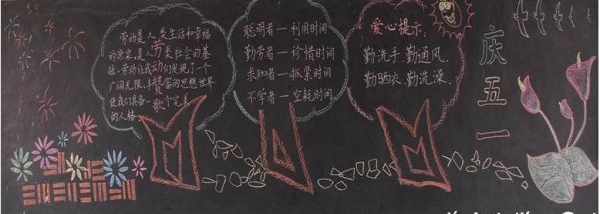 劳动是人类生活和幸福
的源泉,是人类社会的基
础,劳动让我们发现了一个
广阔无限、丰富的思想世界
使我们具备一个完美
的人格
劳动赞歌
聪明者—利用时间
勤劳者—珍惜时间
求知者—抓紧时间
不学者—空耗时间
爱心提示:
勤洗手、勤通风、
勤晒衣、勤洗澡。
庆五一